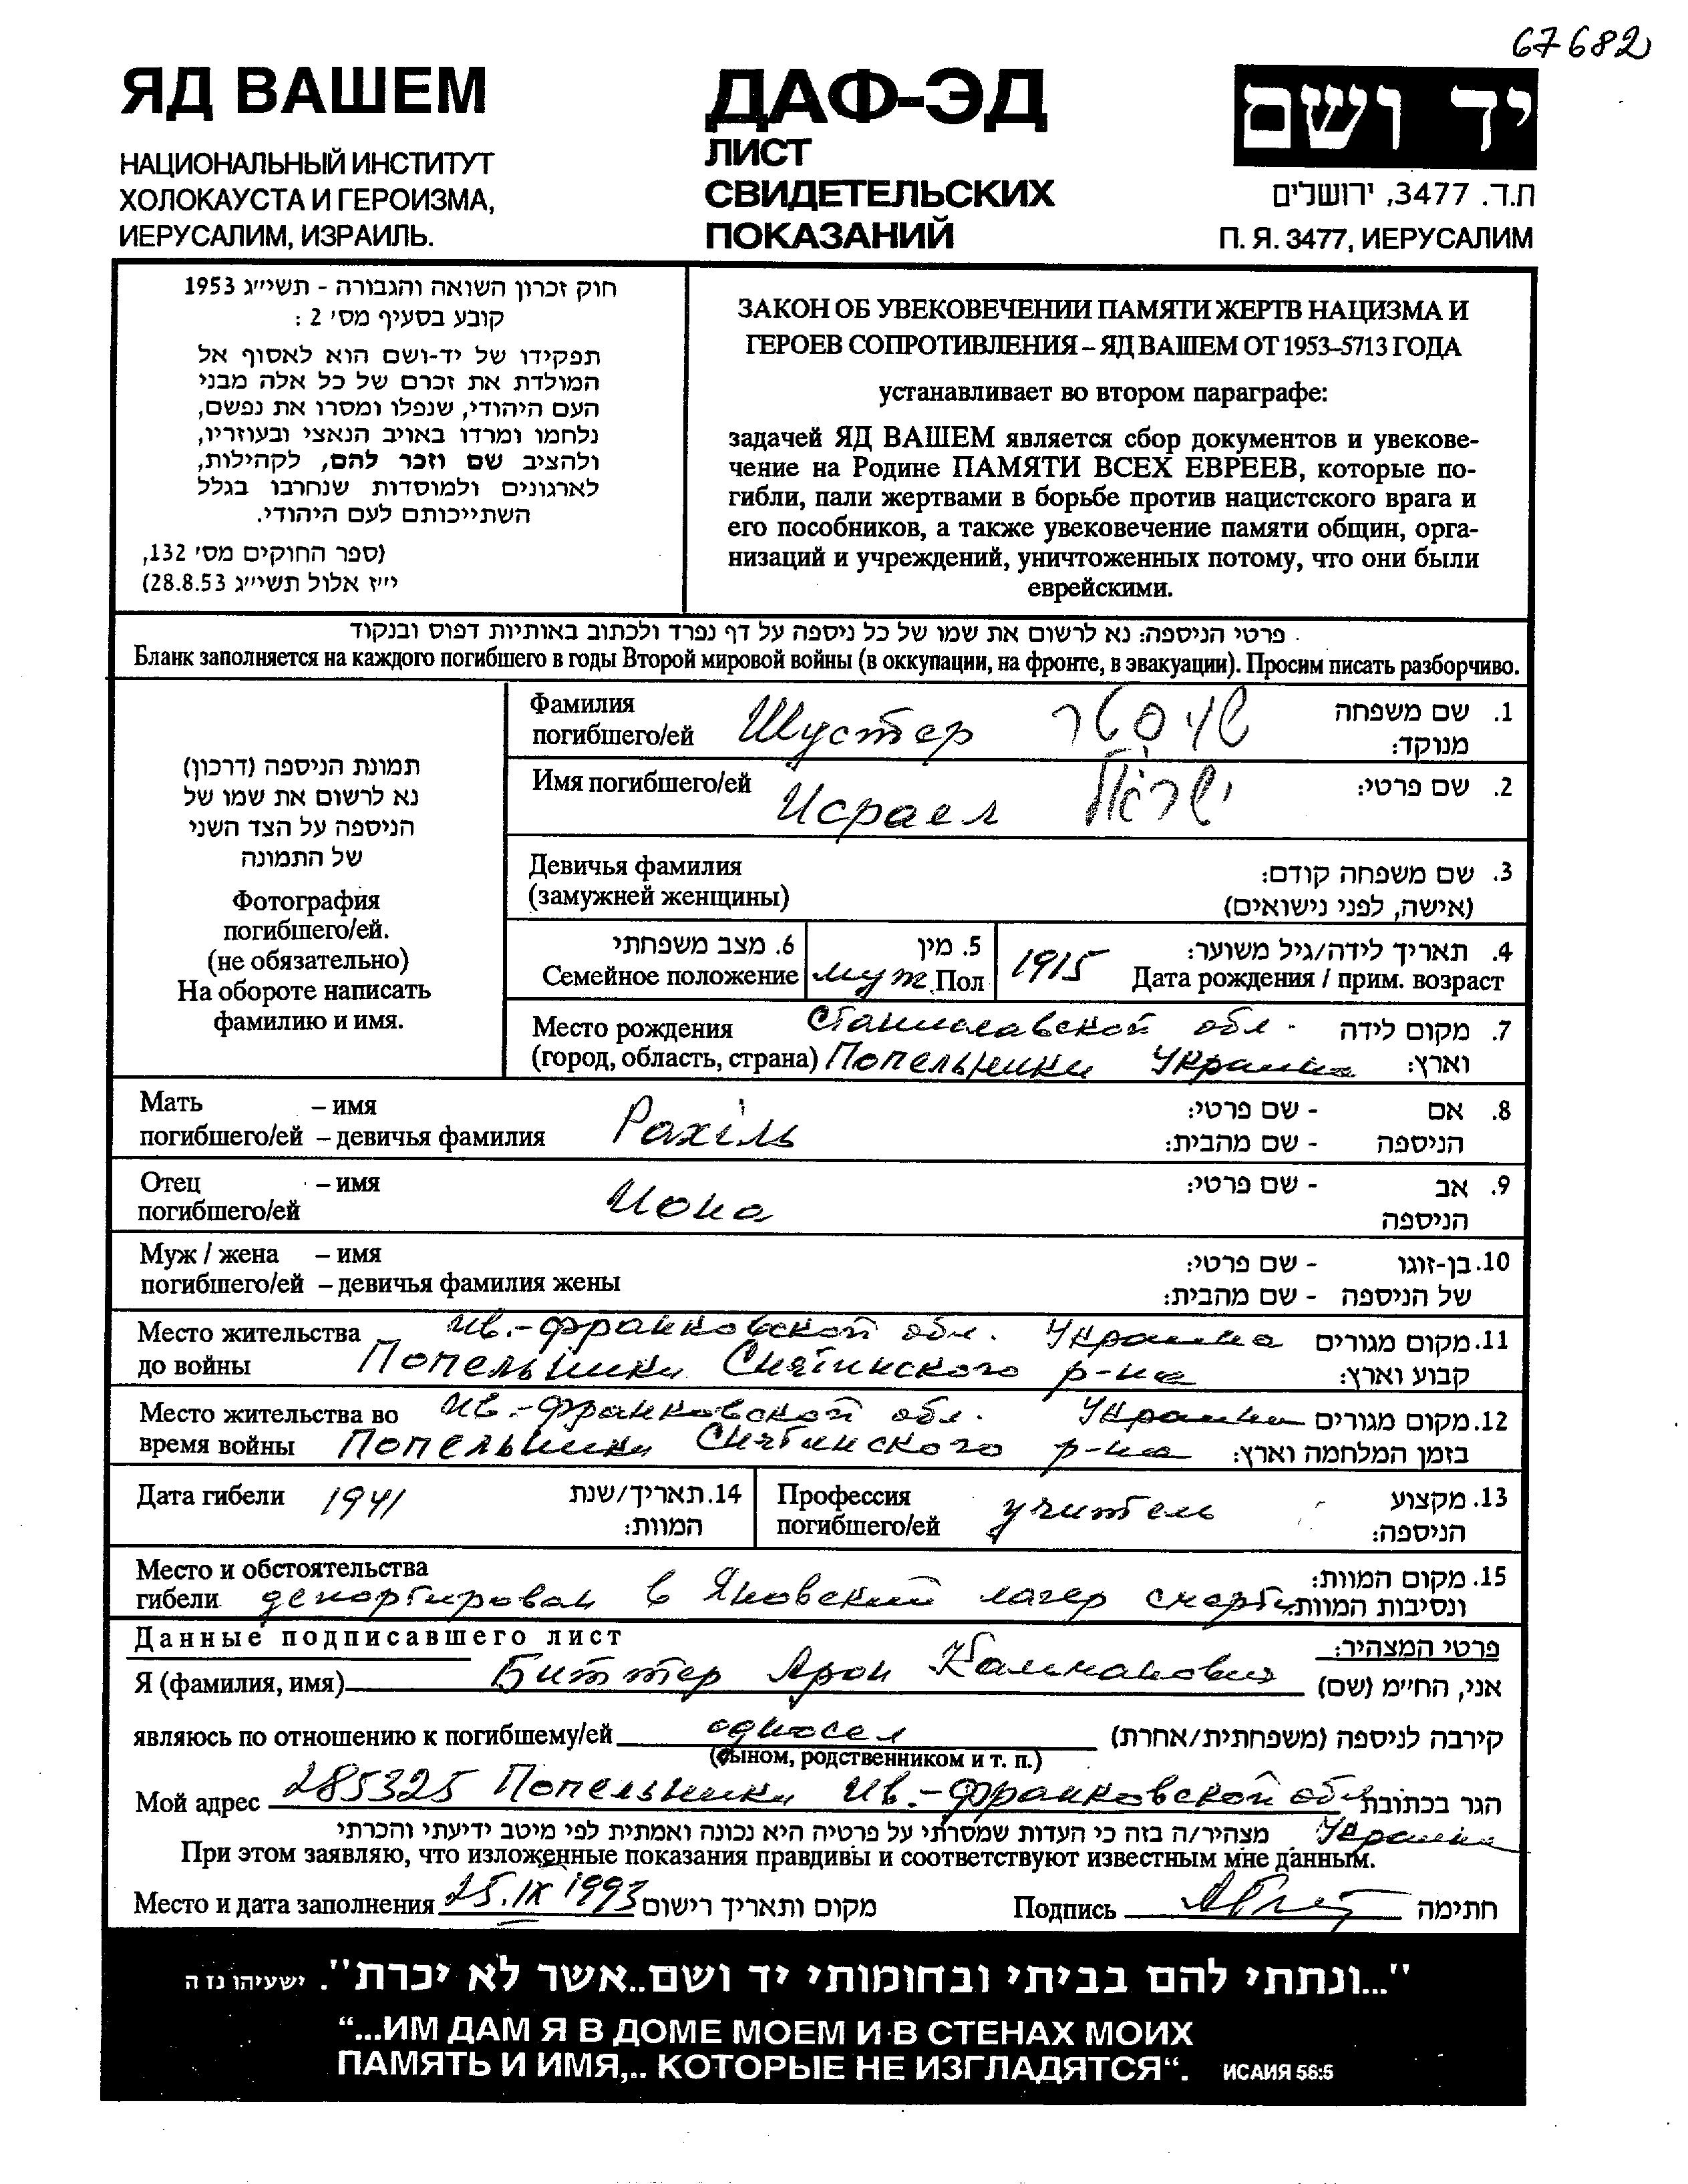 67682
ЯД ВАШЕМ
НАЦИОНАЛЬНЫЙ ИНСТИТУТ
ХОЛОКАУСТА И ГЕРОИЗМА,
ИЕРУСАЛИМ, ИЗРАИЛЬ.
ДАФ-ЭД
ЛИСТ
СВИДЕТЕЛЬСКИХ
ПОКАЗАНИЙ
יד ושם
ת.ד. 3477, ירושלים
П. Я. 3477, ИЕРУСАЛИМ
חוק זכרון השואה והגבורה - תשי״ג 1953
קובע בסעיף מס׳ 2 :
תפקידו של יד-ושם הוא לאסוף אל
המולדת את זכרם של כל אלה מבני
העם היהודי, שנפלו ומסרו את נפשם,
נלחמו ומרדו באויב הנאצי ובעוזריו,
ולהציב שם וזכר להם, לקהילות,
לארגונים ולמוסדות שנחרבו בגלל
השתייכותם לעם היהודי.
(ספר החוקים מס׳ 132,
י״ז אלול תשי״ג 28.8.53)
ЗАКОН ОБ УВЕКОВЕЧЕНИИ ПАМЯТИ ЖЕРТВ НАЦИЗМА И
ГЕРОЕВ СОПРОТИВЛЕНИЯ – ЯД ВАШЕМ ОТ 1953–5713 ГОДА
устанавливает во втором параграфе:
задачей ЯД ВАШЕМ является сбор документов и увекове-
чение на Родине ПАМЯТИ ВСЕХ ЕВРЕЕВ, которые по-
гибли, пали жертвами в борьбе против нацистского врага и
его пособников, а также увековечение памяти общин, орга-
низаций и учреждений, уничтоженных потому, что они были
еврейскими.
פרטי הניספה: נא לרשום את שמו של כל ניספה על דף נפרד ולכתוב באותיות דפוס ובנקוד
Бланк заполняется на каждого погибшего в годы Второй мировой войны (в оккупации, на фронте, в эвакуации). Просим писать разборчиво.
תמונת הניספה (דרכון)
נא לרשום את שמו של
הניספה על הצד השני
של התמונה
Фотография
погибшего/ей.
(не обязательно)
На обороте написать
фамилию и имя.
Фамилия
погибшего/ей Шустер שוסטר
1. שם משפחה
מנוקד:
Имя погибшего/ей Исраел ישראל 2. שם פרטי:
Девичья фамилия
(замужней женщины)
3. שם משפחה קודם:
(אישה, לפני נישואים)
6. מצב משפחתי
Семейное положение
5. מין
муж. Пол
1915
4. תאריך לידה/גיל משוער:
Дата рождения / прим. возраст
Место рождения Станиславской обл. 7. מקום לידה
(город, область, страна) Попельники Украина וארץ:
Мать – имя Рахіль 8. אם - שם פרטי:
погибшего/ей – девичья фамилия הניספה - שם מהבית:
Отец – имя Иона 9. אב - שם פרטי:
погибшего/ей הניספה
Муж / жена – имя 10. בן-זוגו - שם פרטי:
погибшего/ей – девичья фамилия жены של הניספה - שם מהבית:
Место жительства Ив.-Франковской обл. Украина 11. מקום מגורים
до войны Попельники Снятинского р-на קבוע וארץ:
Место жительства во Ив.-Франковской обл. Украина 12. מקום מגורים
время войны Попельники Снятинского р-на בזמן המלחמה וארץ:
Дата гибели 1941 14. תאריך/שנת
המוות:
Профессия
погибшего/ей учитель
13. מקצוע
הניספה:
Место и обстоятельства 15. מקום המוות:
гибели депортирован в Яновский лагер смерти ונסיבות המוות:
Данные подписавшего лист פרטי המצהיר:
Я (фамилия, имя) Биттер Арон Калманович אני, הח״מ (שם)
являюсь по отношению к погибшему/ей односел קירבה לניספה (משפחתית/אחרת)
(сыном, родственником и т. п.)
Мой адрес 285325 Попельники Ив.-Франковской обл. הגר בכתובת
Украина מצהיר/ה בזה כי העדות שמסרתי על פרטיה היא נכונה ואמתית לפי מיטב ידיעתי והכרתי
При этом заявляю, что изложенные показания правдивы и соответствуют известным мне данным.
Место и дата заполнения 25.IX 1993 מקום ותאריך רישום Подпись חתימה
"...ונתתי להם בביתי ובחומותי יד ושם..אשר לא יכרת". ישעיהו נז ה
“...ИМ ДАМ Я В ДОМЕ МОЕМ И В СТЕНАХ МОИХ
ПАМЯТЬ И ИМЯ,.. КОТОРЫЕ НЕ ИЗГЛАДЯТСЯ“. ИСАИЯ 56:5